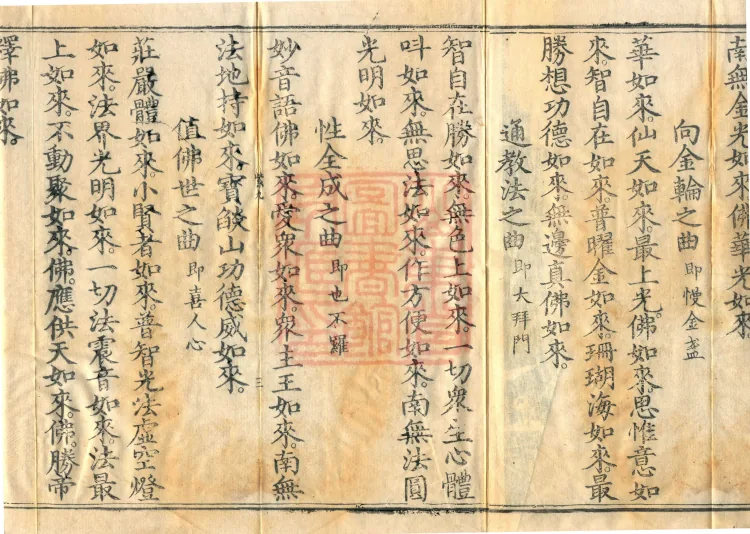 南無金光如來。佛華光如來。
向金輪之曲 即慢金盞
華如來。仙天如來。最上光。佛如來。思惟意如
來。智自在如來。普曜金如來。珊瑚海如來。最
勝想功德如來。無邊真佛如來。
通教法之曲 即大拜門
智自在勝如來。無色上如來。一切衆生心體
呌如來。無思法如來。作方便如來。南無法圓
光明如來。
性全成之曲 即也不羅
妙音語佛如來。愛衆如來。衆主王如來。南無
法地持如來。寶燄山功德威如來。
三
值佛世之曲 即喜人心
莊嚴體如來。小賢者如來。普智光法虛空燈
如來。法界光明如來。一切法震音如來。法最
上如來。不動聚如來。佛。應供天如來。佛。勝帝
釋佛如來。